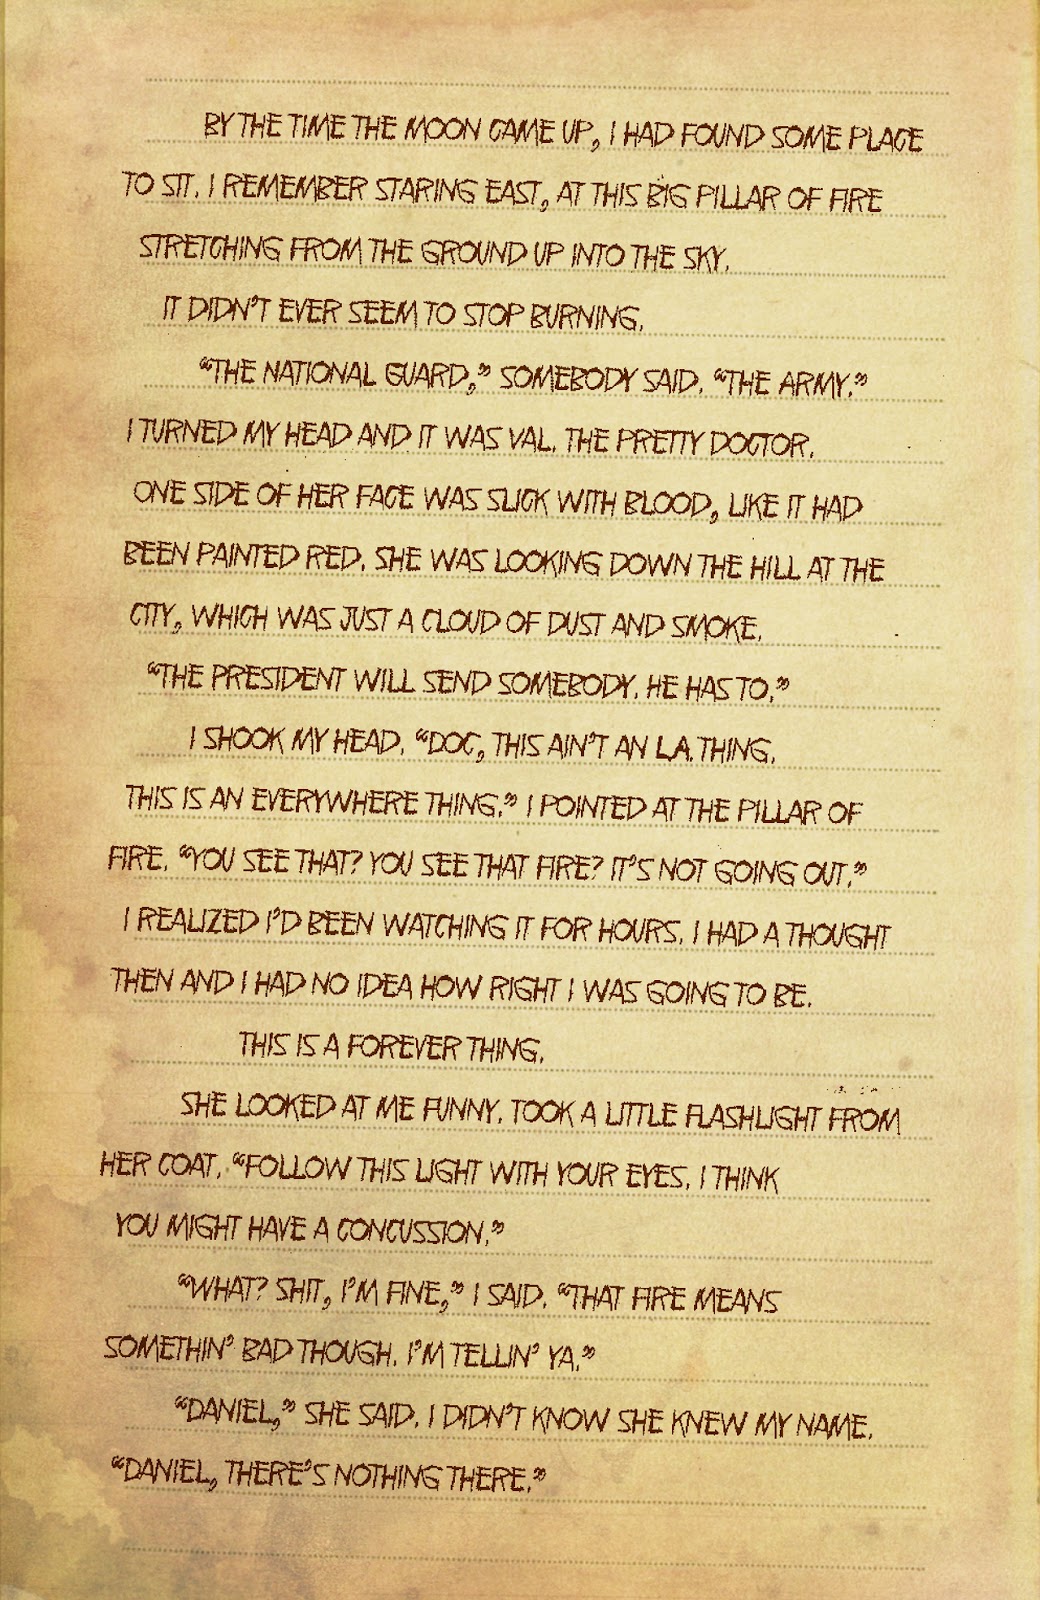 BY THE TIME THE MOON CAME UP, I HAD FOUND SOME PLACE
TO SIT. I REMEMBER STARING EAST, AT THIS BIG PILLAR OF FIRE
STRETCHING FROM THE GROUND UP INTO THE SKY.
IT DIDN'T EVER SEEM TO STOP BURNING.
“THE NATIONAL GUARD,” SOMEBODY SAID. “THE ARMY.”
I TURNED MY HEAD AND IT WAS VAL. THE PRETTY DOCTOR.
ONE SIDE OF HER FACE WAS SLICK WITH BLOOD, LIKE IT HAD
BEEN PAINTED RED. SHE WAS LOOKING DOWN THE HILL AT THE
CITY, WHICH WAS JUST A CLOUD OF DUST AND SMOKE.
“THE PRESIDENT WILL SEND SOMEBODY. HE HAS TO.”
I SHOOK MY HEAD. “DOC, THIS AIN'T AN L.A. THING.
THIS IS AN EVERYWHERE THING.” I POINTED AT THE PILLAR OF
FIRE. “YOU SEE THAT? YOU SEE THAT FIRE? IT'S NOT GOING OUT.”
I REALIZED I'D BEEN WATCHING IT FOR HOURS. I HAD A THOUGHT
THEN AND I HAD NO IDEA HOW RIGHT I WAS GOING TO BE.
THIS IS A FOREVER THING.
SHE LOOKED AT ME FUNNY. TOOK A LITTLE FLASHLIGHT FROM
HER COAT. “FOLLOW THIS LIGHT WITH YOUR EYES. I THINK
YOU MIGHT HAVE A CONCUSSION.”
“WHAT? SHIT, I'M FINE,” I SAID. “THAT FIRE MEANS
SOMETHIN' BAD THOUGH. I'M TELLIN' YA.”
“DANIEL,” SHE SAID. I DIDN'T KNOW SHE KNEW MY NAME.
“DANIEL, THERE'S NOTHING THERE.”